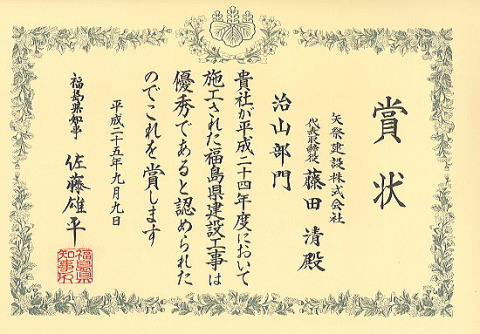 賞状
矢祭建設株式会社
代表取締役 藤田清殿
治山部門
貴社が平成二十四年度において
施工された福島県建設工事は
優秀であると認められた
のでこれを賞します
平成二十五年九月九日
福島県知事 佐藤雄平
福島県
知事印